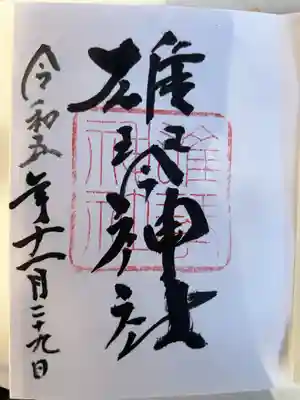 雄琴神社
令和五年十一月二十九日